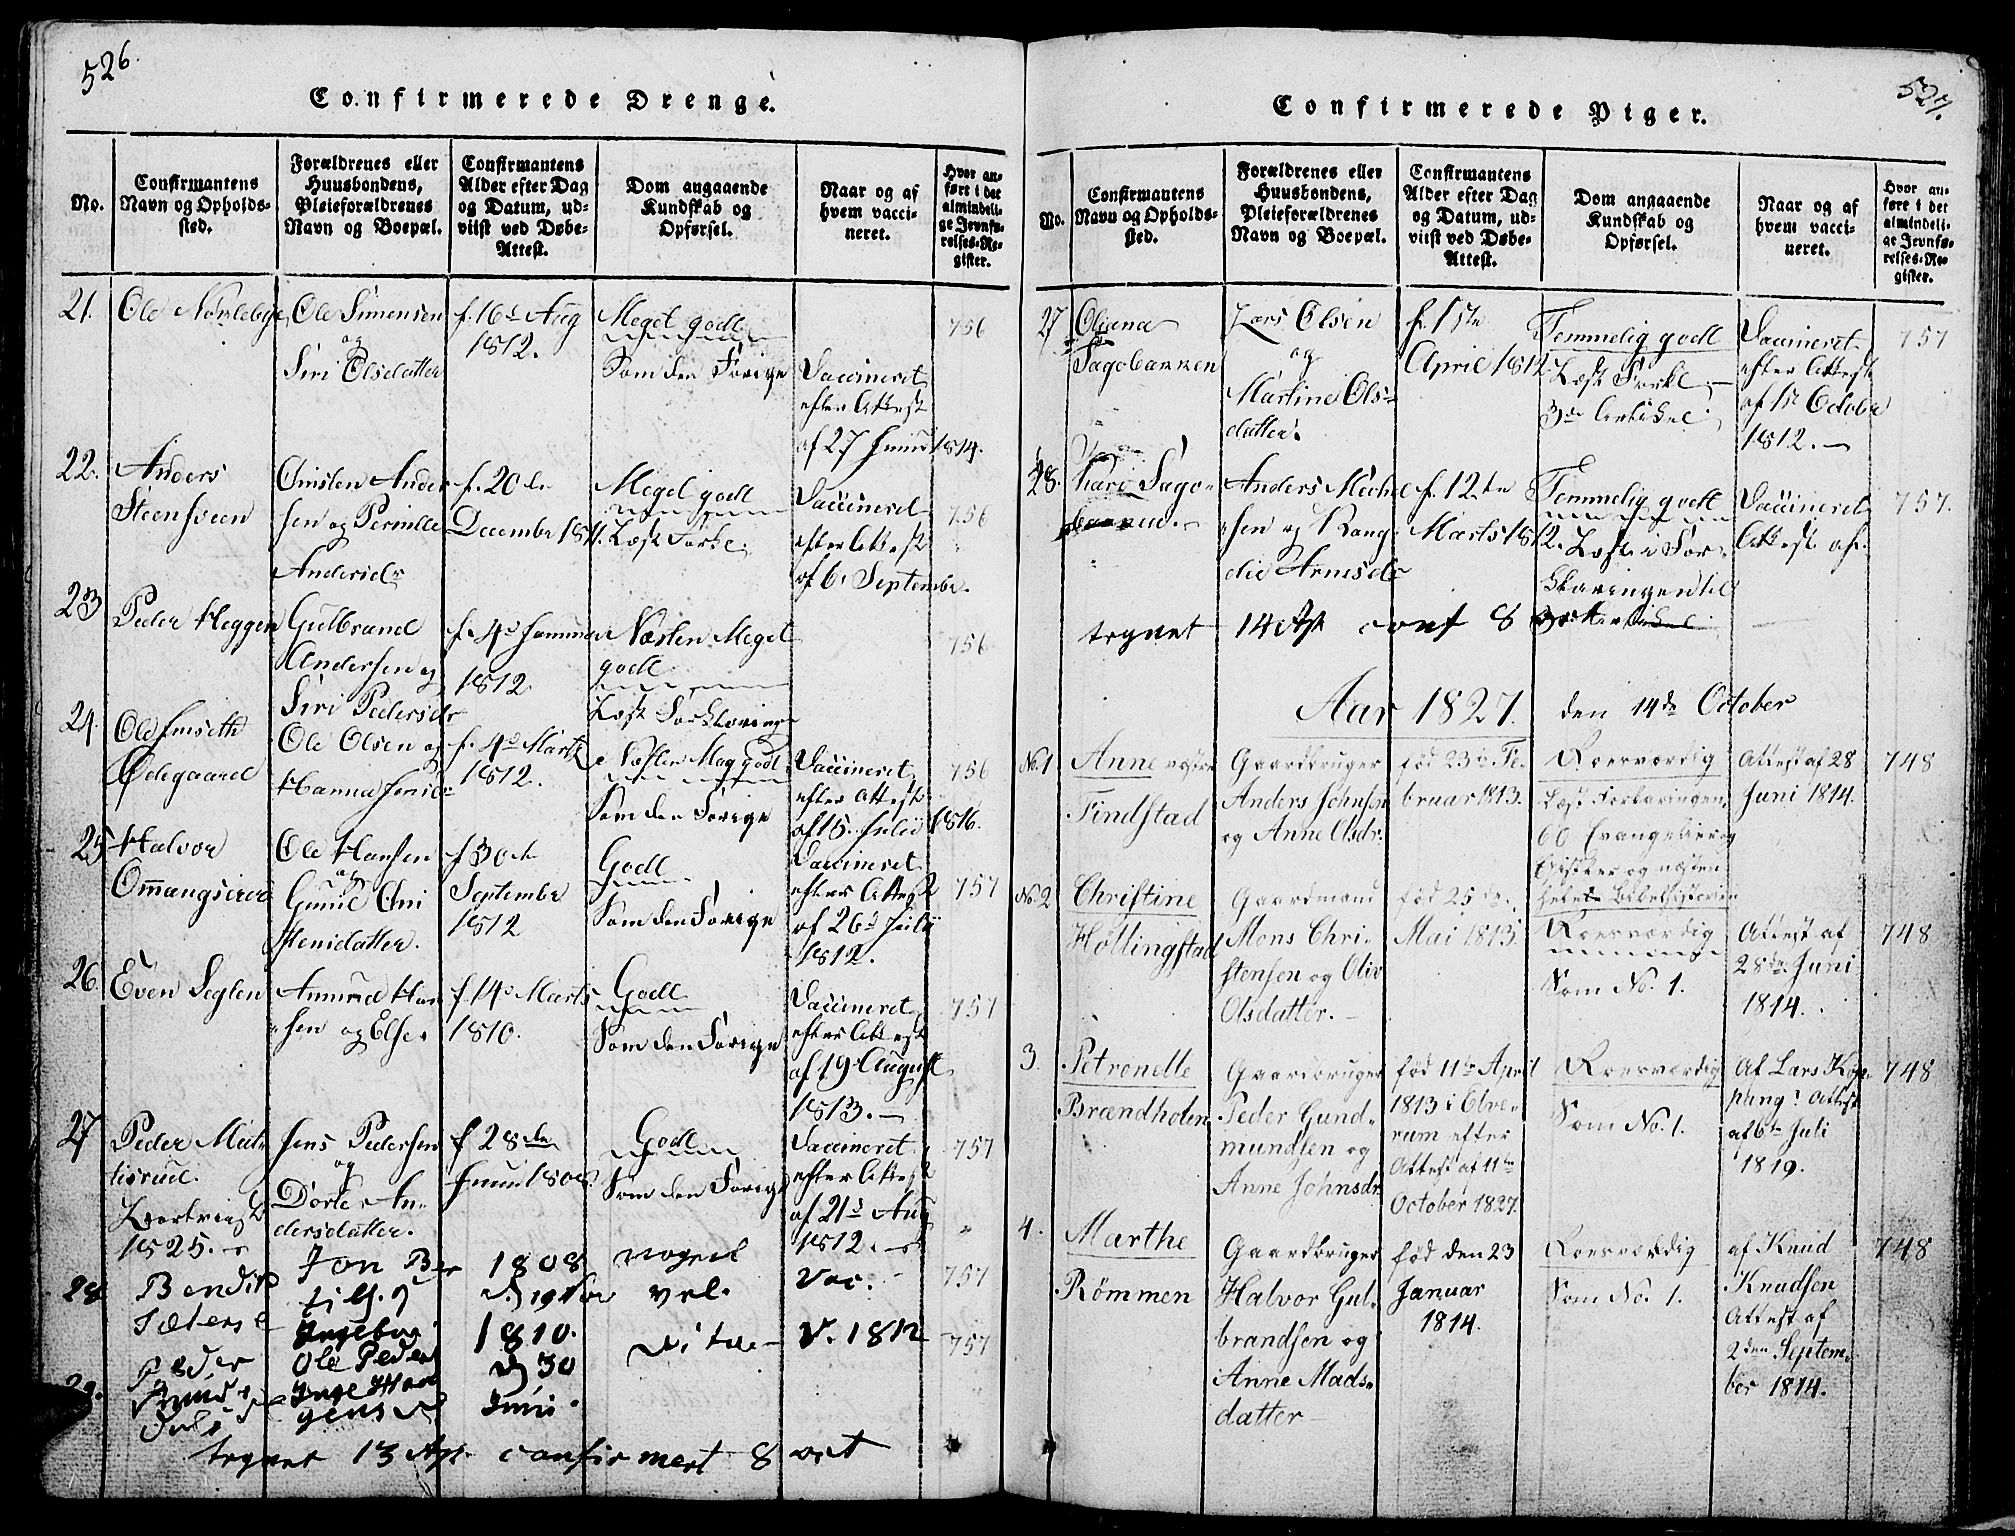 526.
Confirmerede Drenge.
No.
Confirmantens
Navn og Opholds-
sted.
Forældrenes eller
Huusbondens,
Pleieforældrenes
Navn og Boepæl.
Confirmantens
Alder efter Dag
og Datum, ud-
viist ved Døbe-
Attest.
Dom angaaende
Kundskab og
Opførsel.
Naar og af
hvem vacci-
neret.
Hvor an-
ført i det
almindeli-
ge Jevnfø-
relses-Re-
gister.
21.
Ole
Ole Simensen
og
Siri Olsdatter
f. 16d Aug
1812.
Meget godt
Som den Forige
Vaccineret
efter Attest
af 27 Junii 1814.
756
22.
Anders
Steensveen
Christen Ander
sen og Pernille
Andersdr
f. 20de
December 1811.
Meget godt
Læst
Vaccineret
efter Attest
af 6. Septembr.
756
23
Peder Heggen
Gulbrand
Andersen og
Siri Pedersdr
f. 4d Januar
1812
Næsten Meget
godt
Læst Forklaring
756
24.
Ole
Ødegaard
Ole Olsen og
Hanna
f. 4d Marts
1812.
Næsten Meg godt
Som den Forige
Vaccineret
efter Attest
af 15. Julii 1816.
756
25
Halvor
Ommangseier
Ole Hansen
og
Gunil Chri
stensdatter.
f 30de
September
1812
Godt
Som den Forige
Vaccineret
efter Attest
af 26d Julii
1812.
757
26
Even Seglen
Amund Han
sen og Else
f. 14d Marts
1810.
Godt
Som den Forige
Vaccineret
efter Attest
af 19 August
1813.
757
27
Peder
Jens Pedersen
og
Dorte An-
dersdatter.
f 28de
Junii 1808
Godt
Som den Forige
Vaccineret
efter Attest
af 21d Aug
1812.
1825.
757
28
Bendik
Jon
1808
noget
vel.
Vac.
757
29.
Peder
Ole Peders
1810.
d 30
Juni.
ditto
V. 1812
757
tegnet 13 Apr confirmert 8 oct
527.
Confirmerede Piger.
No.
Confirmantens
Navn og Opholds-
sted.
Forældrenes eller
Huusbondens,
Pleieforældrenes
Navn og Boepæl.
Confirmantens
Alder efter Dag
og Datum, ud-
viist ved Døbe-
Attest.
Dom angaaende
Kundskab og
Opførsel.
Naar og af
hvem vacci-
neret.
Hvor an-
føre i det
almindeli-
ge Jevnfø-
relses-Re-
gister.
27
Oliana
Sagobakken
Lars Olsen
og
Martine Ols-
datter.
f. 1ste
April 1812
Temmelig godt
Læst Forkl.
3de Artikel.
Vaccineret
efter Attest
af 1st October
1812.
757
28.
Kari Sago-
bakken.
Anders Michel
sen og Rang
die Arnesdr
f. 12te
Marts 1812.
Temmelig godt
Læst i For-
klaringen til
3die Artikel
Vaccineret
Attest af.
757.
tegnet 14 Apr conf 8 oct
Aar 1827. den 14de October
No. 1
Anne vestre
Findstad
Gaardbruger
Anders Johnsen
og Anne Olsdr.
fød 23de Fe-
bruar 1813.
Roesværdig
Læst Forklaringen,
60 Evangelier og
Epistler og næsten
hele Bibelhistorien
Attest af 28
Juni 1814.
748
No. 2
Christine
Høllingstad
Gaardmand
Mons Chri-
stensen og Oliv
Olsdatter.
fød 25de
Mai 1813.
Roesværdig
Som No. 1.
Attest af
28de Juni
1814.
748
3.
Petronelle
Brændholen
Gaardbruger
Peder Gund-
mundsen og
Anne Johnsdr.
fød 11te April
1813 i Elve-
rum efter
Attest af 11te
October 1827.
Roesværdig
Som No. 1.
Af Lars Kop-
pang? Attest
af 6te Juli
1819.
748
4.
Marthe
Rømmen
Gaardbruger
Halvor Gul-
brandsen og
Anne Mads-
datter
fød den 23
Januar
1814.
Roesværdig
Som No. 1.
af Knud
Knudsen
Attest af
2den Septem-
ber 1814.
748